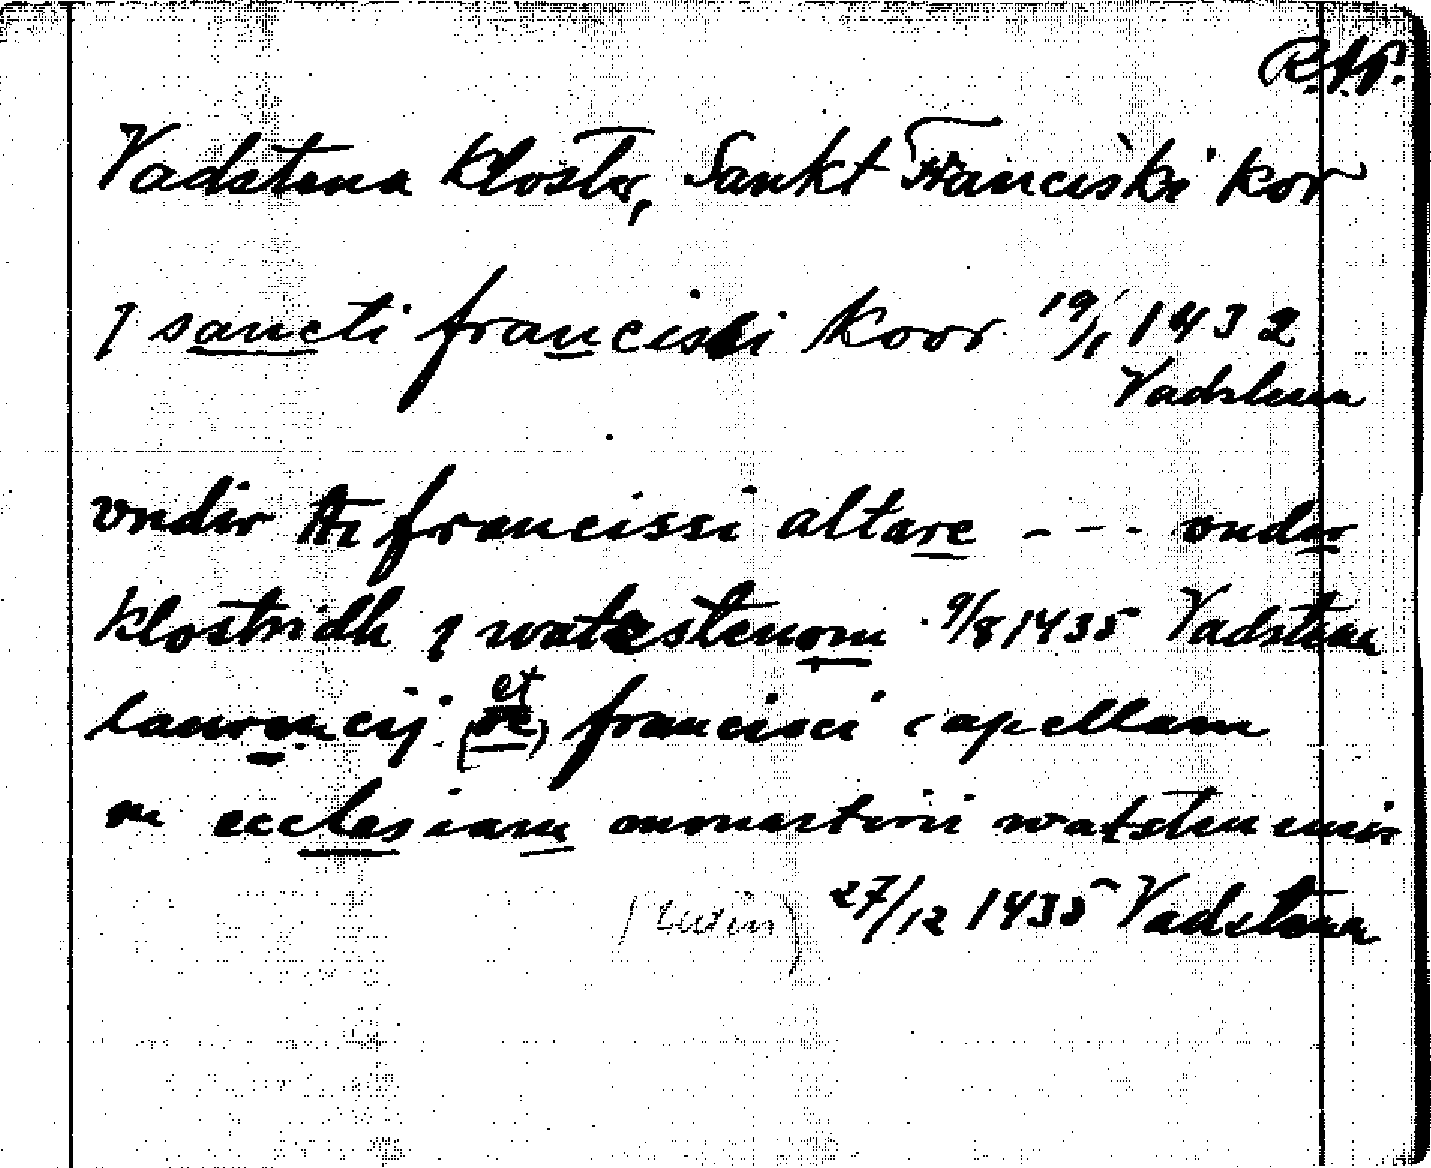 R.A.P.
Vadstena kloster, Sankt Franciski kor
j sancti francisci koor 19/1 1432
Vadstena
vndir sti francissi altare - - - under
klostridh j watzstenom 9/8 1435 Vadstena
et
laurencij francisci capellam
in ecclesiam monasterii watstenensis
27/12 1435 Vadstena